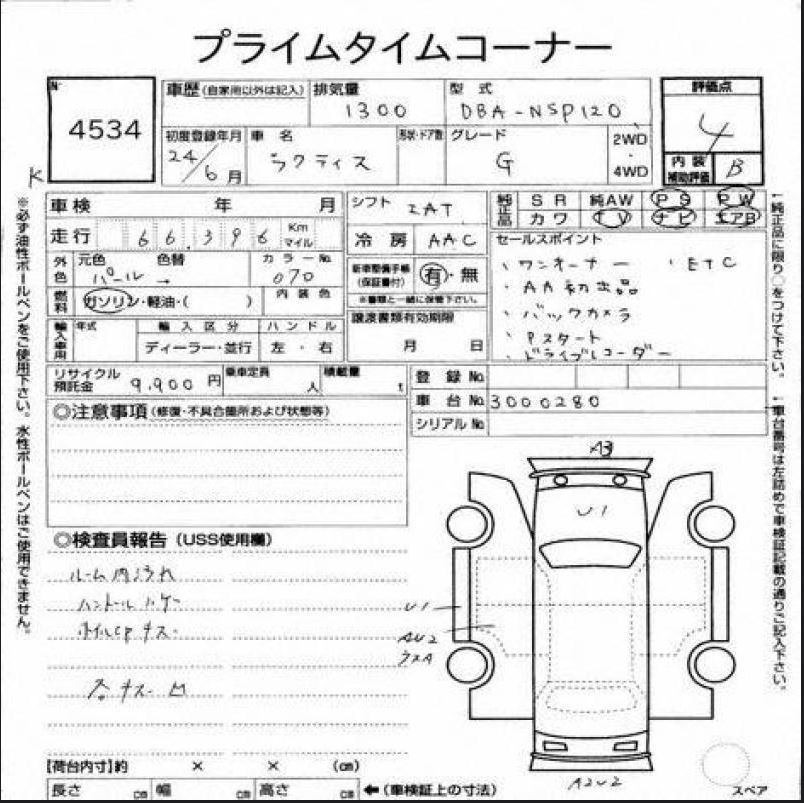 プライムタイムコーナー
No.
4534
K
車歴 (自家用以外は記入)
排気量
1300
型式
DBA-NSP120
評価点
4
内装
補助評価
B
初度登録年月
24/6月
車名
ラクティス
形状・ドア数
グレード
G
2WD
・
4WD
車検 年 月
走行 66,396 Km マイル
外色 元色 パール → 色替
カラーNo. 070
燃料 ガソリン・軽油・( )
内装色
輸入車用 年式 輸入区分 ハンドル
ディーラー・並行 左・右
シフト IAT
冷房 AAC
新車整備手帳
(保証書付)
有・無
※書類と一緒に保管下さい。
譲渡書類有効期限
月 日
純正品 SR 純AW PS PW
カワ TV ナビ エアB
セールスポイント
、ワンオーナー 、ETC
、AA初出品
、バックカメラ
、Pスタート
、ドライブレコーダー
リサイクル
預託金 9,900円
乗車定員 人
積載量 t
登録No.
車台No. 3000280
シリアルNo.
◎注意事項 (修復・不具合箇所および状態等)
◎検査員報告 (USS使用欄)
ルーム内ヨゴレ
ハンドルハゲー
ホイルCPキズ・
各キズ・凹
A3
U1
U1
AU2
A2U2
【荷台内寸】約 × × (cm)
長さ cm 幅 cm 高さ cm ←(車検証上の寸法)
スペア
※必ず油性ボールペンをご使用下さい。水性ボールペンはご使用できません。
←純正品に限り○をつけて下さい。
←車台番号は左詰めで車検証記載の通りご記入下さい。